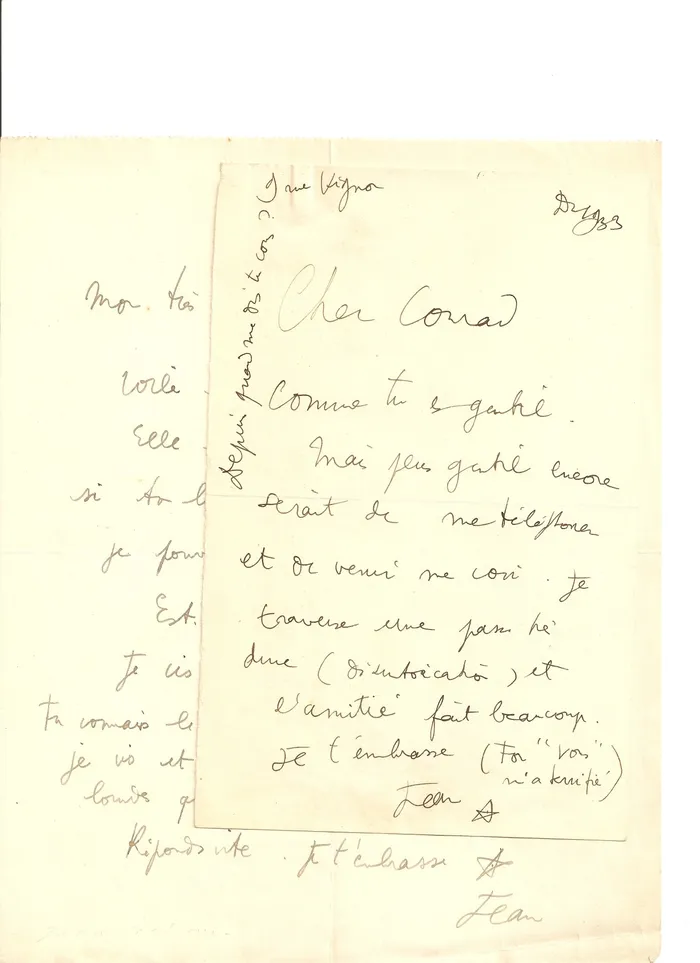 9 rue Vignon
Depuis quand me dis tu vous ?
Cher Conrad
Comme tu es gentil.
Mais plus gentil encore
serait de me téléphoner
et de venir me voir. Je
traverse une passe très
dure (désintoxication) et
l'amitié fait beaucoup.
Je t'embrasse (Ton "Vous"
m'a terrifié)
Jean
Mon très
Voilà
Elle
si tu l
je pour
Est.
Je vis
Tu connais le
je vis et
Réponds vite. Je t'embrasse
Jean